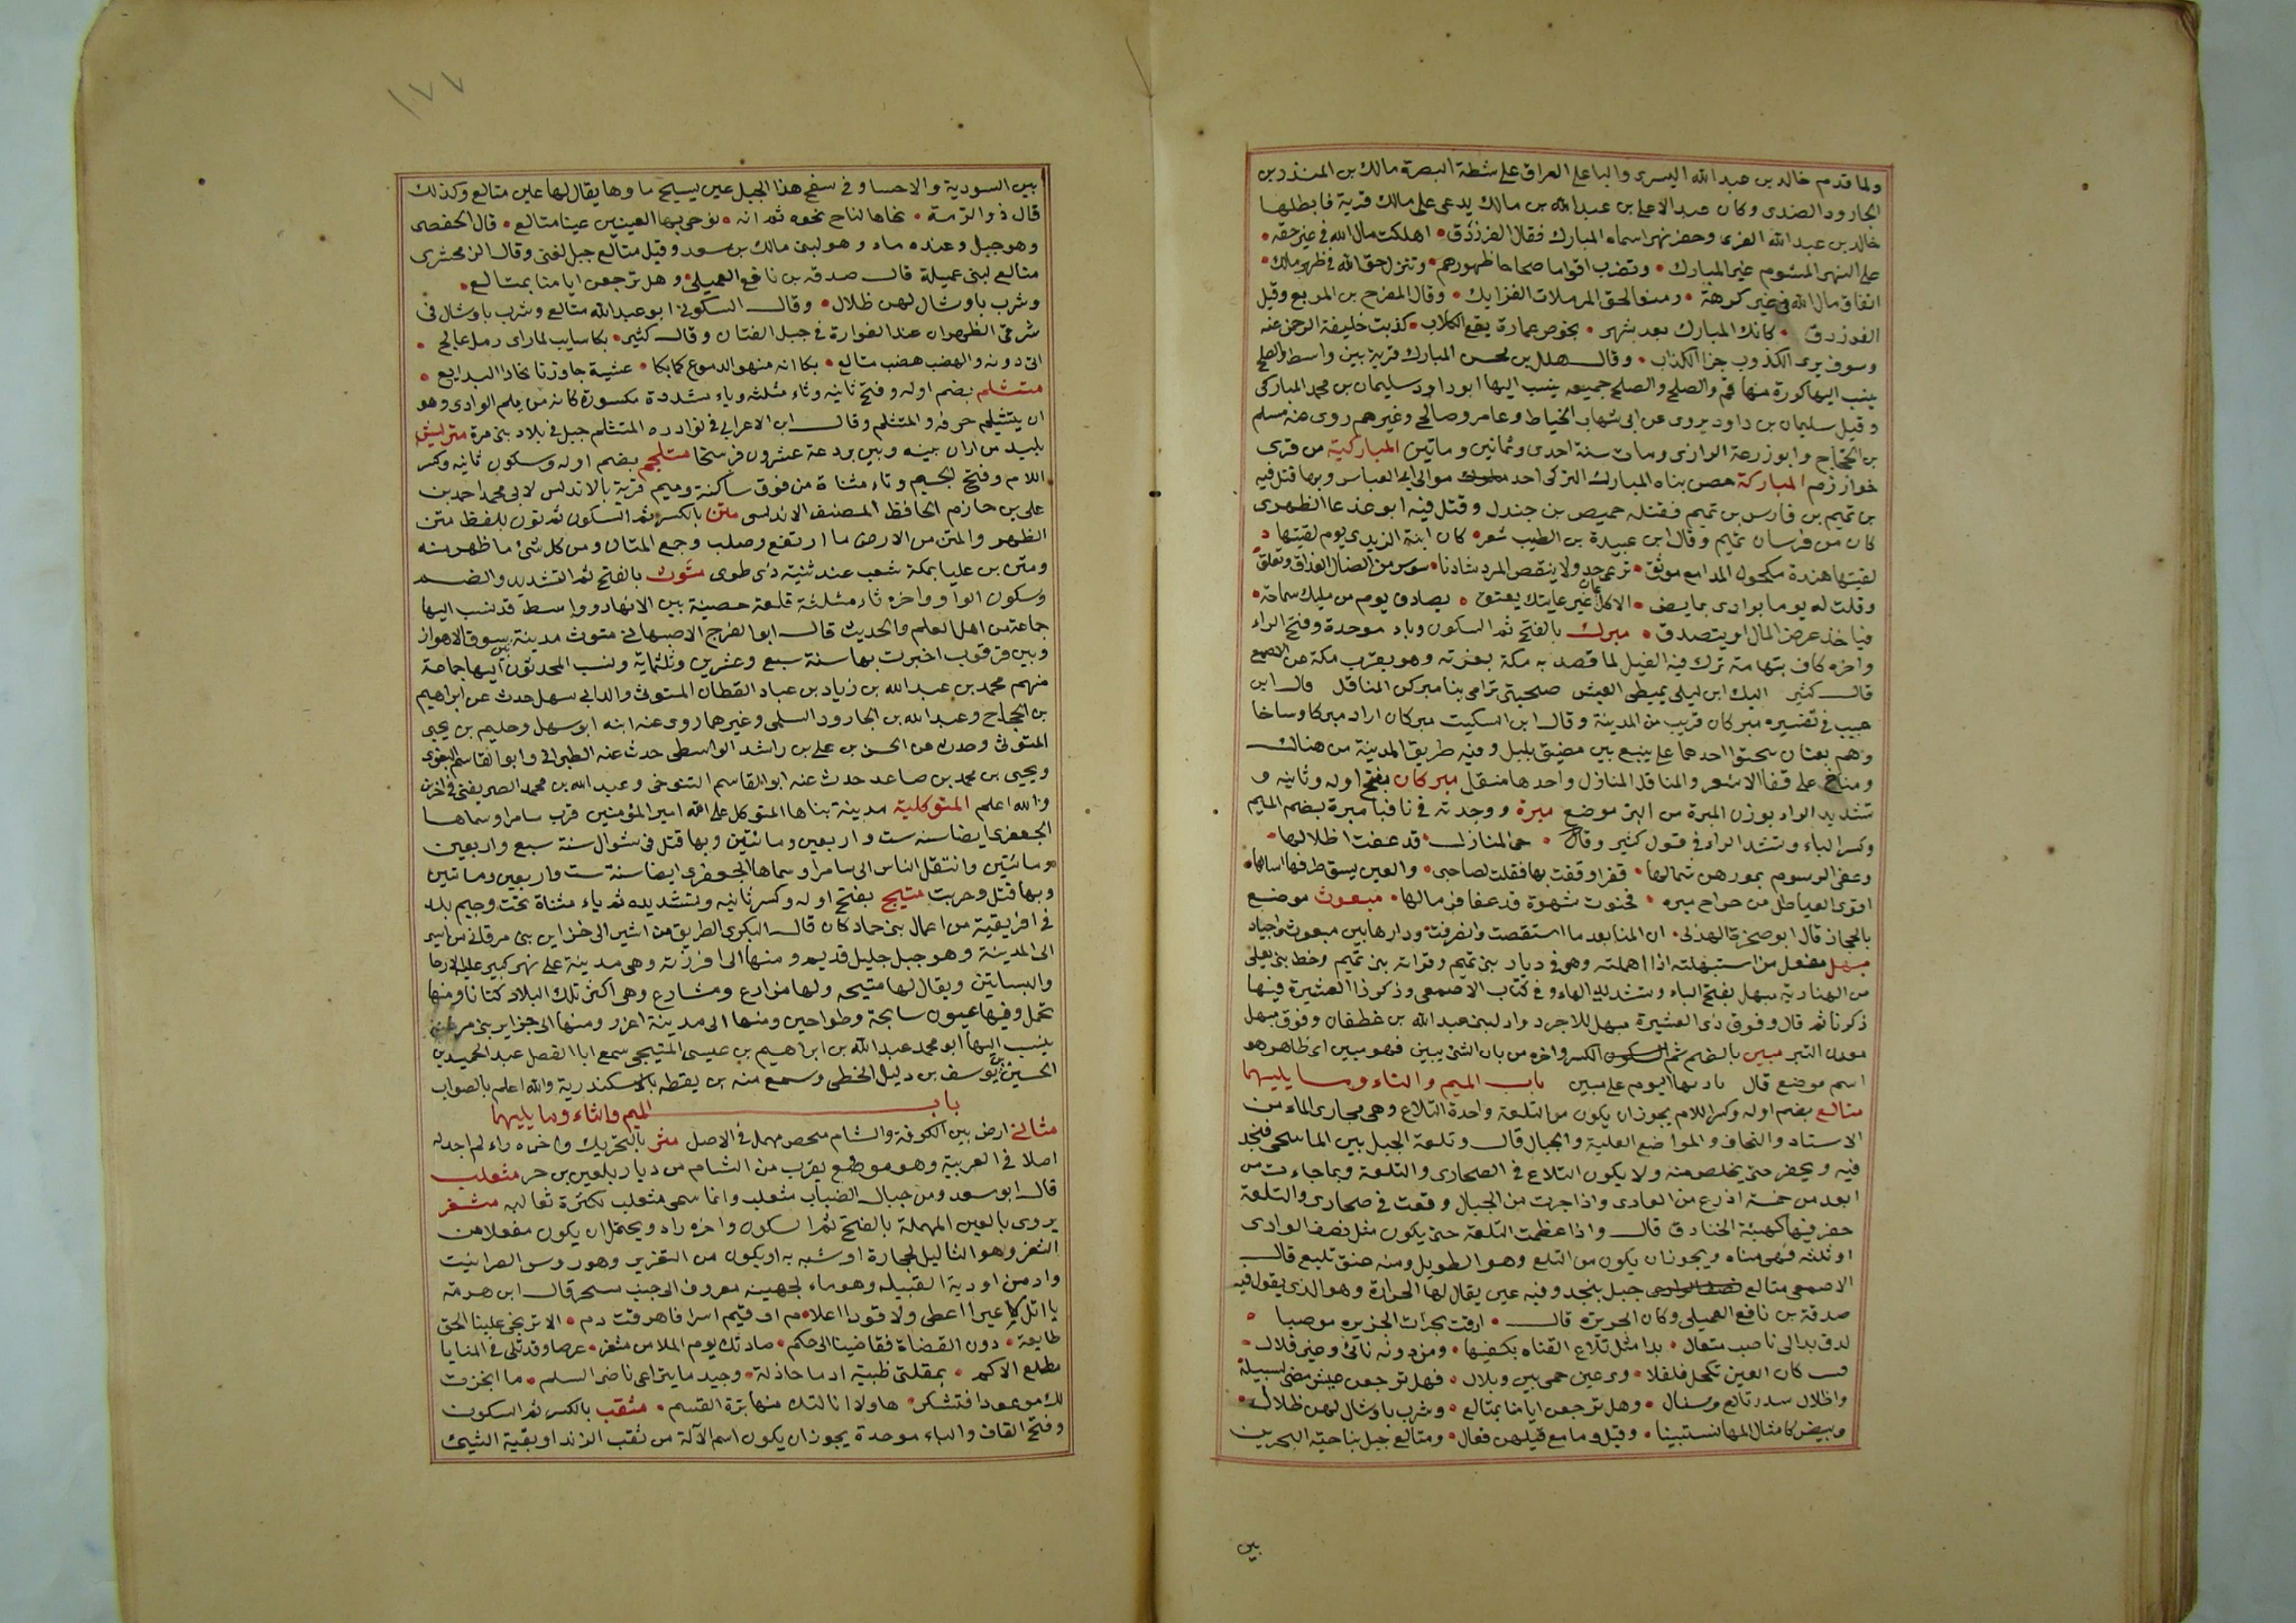 ولما قدم خالد بن عبد الله القسرى واليا على العراق على شطة البصرة مالك بن المنذر بن
الجارود الضدى وكان عبد الاعلى بن عبد الله بن مالك يدعى على مالك قرية فابطلها
خالد بن عبد الله القرى وحفر نهرا سماه المبارك فقال الفرزدق اهلكت مال الله فى غير حقه
على النهر المشوم غير المبارك وتضرب اقواما صحاحا ظهورهم وتترك حق الله فى ظهر مالك
انفاق مال الله فى غير كرهة ومنعا لحق المرملات الضرايك وقال المفرح بن المربع وقيل
الفرزدق كانك المبارك بعد شهر يخوض عماره يقع الكلاب كذبت خليفة الرحمن عنه
وسوف يرى الكذوب جزا الكذاب وقال هلال بن محسن المبارك قرية بين واسط والصلح
ينسب اليها كورة منها فم والصلح والصلح جميعه ينسب اليها ابو داود سليمان بن محمد المباركى
وقيل سليمان بن داود يروى عن ابى شهاب الخياط وعامر وصالح وغيرهم روى عنه مسلم
بن الحجاج وابو زرعة الرازى ومات سنة احدى وثمانين وماتين المباركية من قرى
خوارزم المباركة حصن بناه المبارك التركى احد موالى بنى العباس وبها قتل فيه
بن تميم بن فارس بن تميم فقتله حميص بن جندل وقتل فيه ابو الظهوى
كان من فرسان تميم وقال ابن عبيدة بن الطيب شعر كان ابنة الزيدى يوم لقيتها
لقيتها هندة مكحول المدامع موثق
وقلت له يوما بوادى الاكل عان غير عاتك يعتق يصادف يوم من مليك سماحة
فيا خذ عرض المال او يتصدق مبرك بالفتح ثم السكون وباء موحدة وفتح الراء
واخره كاف بتهامة ترك فيه الفيل لما قصد به مكة بعرنة وهو بقرب مكة عن الاصمعى
قال كثير اليك ابن ليلى يمتطى العيس صحبتى ترامى بنا مبركين المناقل قال ابن
حبيب فى تفسيره مبركان قريب من المدينة وقال ابن السكيت مبركان اراد مبركا وماخا
وهم نقبان يتحدر احدهما على ينبع بين مضيق يليل وفيه طريق المدينة من هناك
ومناخ على قفا الاشعر والمناقل المنازل واحدها منقل مبركان بفتح اوله وثانيه و
تشديد الراء بوزن المبرة من البر موضع مبرة ووجدته فى نافيا مبرة بضم الميم
وكسر الباء وتشد الراء فى قول كثير وقال حى المنازل قد عفت اطلالها
وعفى الرسوم بمورهن شمالها قفر وقفت بها فقلت لصاحبى والعين يسبق طرفها اسبالها
اقوى الغياطل من حراج مبره فخبوت سهوة قد عفا فرمالها مبعوث موضع
بالحجاز قال ابو صخرة الهذلى ان المنا بعد ما استقصت وانفرفت ودارها بين مبعوث واجياد
مبهل مفعل من استبهلته اذا اهملته وهو فى ديار بنى تميم وقراته بنى تميم وخط بنى يعلى
من الهنادية مبهل بفتح الباء وتشديد الهاء وفى كتاب الاصمعى وذكر ذا العشيرة فيها
ذكرنا ثم قال وفوق ذى العشيرة مبهل للاجرد واد لبنى عبد الله بن غطفان وفوق مبهل
معدن التبر مبين بالضم ثم الكسر واخره من بان الشئ يبين فهو مبين اى ظاهر هو
اسم موضع قال يا ربها اليوم على مبين باب الميم والتاء وما يليهما
متالع بضم اوله وكسر اللام يجوز ان يكون من التلعة واحدة التلاع وهى مجارى الماء من
الاسناد والنجاف والمواضع العلية والجبال قال وتلعة الجبل بين الما يجئ فيخد
فيه ويحفر حتى يخلص منه ولا يكون التلاع فى الصحارى والتلعة ربما جاءت من
ابعد من خمسة اذرع من الوادى واذا جرت من الجبال وقعت فى صحارى والتلعة
حفر فيها كهيئة الخنادق قال واذا عظمت التلعة حتى يكون مثل نصف الوادى
او ثلثه فهى ميثاه ويجوز ان يكون من التلع وهو الطويل ومنه عنق تليع قال
الاصمعى متالع جبل بنجد وفيه عين يقال لها الخرارة وهو الذى يقول فيه
صدقة بن نافع العميلى وكان الجريرة قال ارقت بجران الجزيرة موصبا
لبرق بدا لى ناصب متعال بدا مثل تلاع الفتاه بكفها ومن دونه نائى وعبر قلال
كان العين تكحل فلفلا وبى عين حمى بين وبلال فهل ترجعن عيش مضى لسبيله
واظلال سدر تالع وسيال وهل ترجعن ايامنا بمتالع وشرب باوشال لهن ظلال
وبيض كامثال المها تستبينا وقيل وما مع قيلهن فعال ومتالع جبل بناحية البحرين
بين
١٧٧
بين السودية والاحسا وفى سفح هذا الجبل عين يسيح ماوها يقال لها عين متالع وكذلك
قال ذو الرمة نحاها لثاج نحوه ثم انه توخى بها العينين عينا متالع قال الحفصى
وهو جبل وعنده ماء وهو لبنى مالك بن سعد وقيل متالع جبل لغنى وقال الزمخشرى
متالع لبنى عميلة قال صدقه بن نافع العميلى وهل ترجعن ايامنا بمتالع
وشرب باوشال لهن ظلال وقال السكونى ابو عبد الله متالع وشرب باوشال فى
شرقى الظهران عند الفوارة فى جبل القنان وقال كثير بكا سايب لما راى رمل عالج
اتى دونه والهضب هضب متالع بكا انه منهو الدموع كما بكا عشية جاوزنا نجاد البدايع
متثلم بضم اوله وفتح ثانيه وثاء مثلثه وياء مشددة مكسورة كانه من يلم الوادى وهو
ان يتثلم حرفه والمتثلم وقال ابن الاعرابى فى نوادره المتثلم جبل فى بلاد بنى مرة متريس
بليد من اران بينه وبين بردعة عشرون فرسخا متلجم بضم اوله وسكون ثانيه وكسر
اللام وفتح الجيم وتاء مثناة من فوق ساكنة وميم قرية بالاندلس لابى محمد احمد بن
على بن حازم الحافظ المصنف الاندلسى متن بالكسر ثم السكون ثم نون بلفظ متن
الظهر والمتن من الارض ما ارتفع وصلب وجمع المتان ومن كل شئ ما ظهر منه
ومتن بن عليا بمكة شعب عند ثنية ذى طوى متوث بالفتح ثم التشديد والضم
وسكون الواو واخره ثاء مثلثة قلعة حصينة بين الاهواز وواسط قد نسب اليها
جماعة من اهل العلم والحديث قال ابو الفرج الاصبهانى متوث مدينة بين سوق الاهواز
وبين قرقوب اخبرت بها سنة سبع وعشرين وثلثماية ونسب المحدثون اليها جماعة
منهم محمد بن عبد الله بن زياد بن عباد القطان المتوثى والد ابى سهل حدث عن ابراهيم
بن الحجاج وعبد الله بن الجارود السلمى وغيرهما روى عنه ابنه ابو سهل وحليم بن يحيى
المتوثى وحدث عن الحسن بن على بن راشد الواسطى حدث عنه الطبرانى وابو القاسم البغوى
ويحيى بن محمد بن صاعد حدث عنه ابو القاسم التنوخى وعبد الله بن محمد الصريفنى فى اخرين
والله اعلم المتوكلية مدينة بناها المتوكل على الله امير المؤمنين قرب سامرا وسماها
الجعفرى ايضا سنه ست واربعين ومائتين وبها قتل فى شوال سنة سبع واربعين
ومائتين وانتقل الناس الى سامرا وسماها الجعفرى ايضا سنة ست واربعين وماتين
وبها قتل وخربت متيج بفتح اوله وكسر ثانيه وتشديده ثم ياء مثناة تحت وجيم بلد
فى افريقية من اعمال بنى حماد كان قال البكرى الطريق من اشير الى جزاير بنى مرغان من اشير
الى المدينة وهو جبل جليل قديم ومنها الى اقزرنه وهى مدينة على نهر كبير عليه الارحا
والبساتين ويقال لها متيجه ولها مزارع ومشارع وهى اكثر تلك البلاد كتانا ومنها
تحمل وفيها عيون سايحة وطواحين ومنها الى مدينة اغزر ومنها الى جزاير بنى مرغان
ينسب اليها ابو محمد عبد الله بن ابراهيم بن عيسى المتيجى سمع ابا الفضل عبد الحميد بن
الحسين بن يوسف بن دليل الخطى وسمع منه بن نقطه بالاسكندرية والله اعلم بالصواب
باب الميم والثاء وما يليهما
مثالى ارض بين الكوفة والشام محص مهمل فى الاصل مثر بالتحريك واخره راء لم اجد له
اصلا فى العربية وهو موضع بقرب من الشام من ديار بلقين بن جسر مثعلب
قال ابو سعد ومن جبال الضباب مثعلب وانما سمى مثعلب لكثرة ثعالبه مثغر
يروى بالعين المهملة بالفتح ثم السكون واخره راء ويحتمل ان يكون مفعلا من
الثغر وهو الثاليل لحجارة او شبه به او يكون من الثعزير وهو روس الصرانيث
واد من اودية القبيله وهو ماء لجهينه معروف الى جنب سمحر قال ابن هرمة
يا اثل لا غيرا اعطى ولا قودا اعلام م او فيم اسرا فاهرقت دم الا تريحى علينا الحق
طايعة دون القضاة فقاضينا الى حكم صادتك يوم الملا من مثغر عرضا وقد تلاقى المنايا
مطلع الاكم بمقلتى ظبية ادما خاذلة وجيد ما يتراعى ناضر السلم ما انجزت
لك موعودا فتشكر ها ولا انالتك منها برة القسم مثقب بالكسر ثم السكون
وفتح القاف والباء موحدة يجوز ان يكون اسم الآلة من ثقب الزند او بقية الشئ